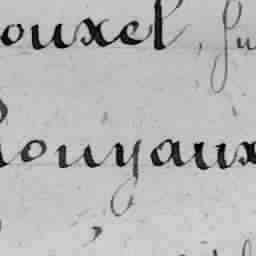 ouxel, fu
ouyaux